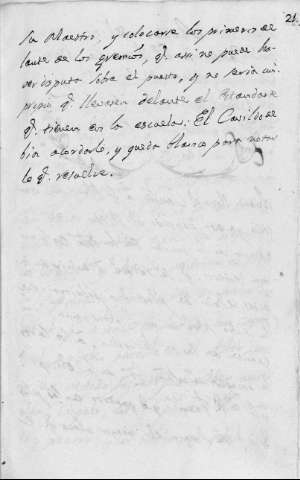 21.
su Maestro, y colocarse los primeros de
lante de los gremios, q. assi no puede ha
ver disputa sobre el puesto, y no seria im
propio q. llevasen delante el Estandarte
q. tienen en la escuela: El Cavildo de
bio acordarlo, y queda blanco para notar
lo q. resuelve.